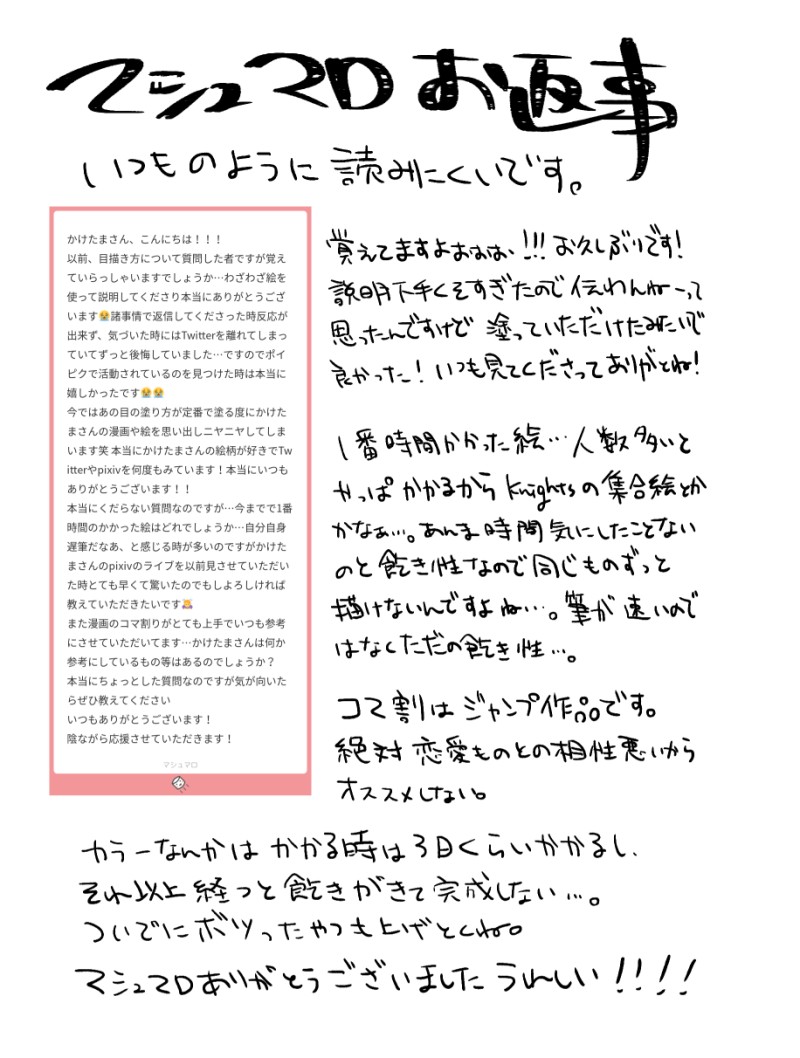 マシュマロお返事
いつものように読みにくいです。
かけたまさん、こんにちは！！！
以前、目描き方について質問した者ですが覚え
ていらっしゃいますでしょうか…わざわざ絵を
使って説明してくださり本当にありがとうござ
います😭諸事情で返信してくださった時反応が
出来ず、気づいた時にはTwitterを離れてしまっ
ていてずっと後悔していました…ですのでポイ
ピクで活動されているのを見つけた時は本当に
嬉しかったです😭😭
今ではあの目の塗り方が定番で塗る度にかけた
まさんの漫画や絵を思い出しニヤニヤしてしま
います笑 本当にかけたまさんの絵柄が好きでTw
itterやpixivを何度もみています！本当にいつも
ありがとうございます！！
本当にくだらない質問なのですが…今までで1番
時間のかかった絵はどれでしょうか…自分自身
遅筆だなあ、と感じる時が多いのですがかけた
まさんのpixivのライブを以前見させていただい
た時とても早くて驚いたのでもしよろしければ
教えていただきたいです🙇
また漫画のコマ割りがとても上手でいつも参考
にさせていただいてます…かけたまさんは何か
参考にしているもの等はあるのでしょうか？
本当にちょっとした質問なのですが気が向いた
らぜひ教えてください
いつもありがとうございます！
陰ながら応援させていただきます！
マシュマロ
覚えてますよおぉぉぉ、!!!お久しぶりです!
説明下手くそすぎたので伝わんねーって
思ったんですけど 塗っていただけたみたいで
良かった！いつも見てくださってありがとね!
1番時間かかった絵…人数多いと
やっぱかかるからKnightsの集合絵とか
かなぁ…。あんま時間気にしたことない
のと飽き性なので同じものずっと
描けないんですよね…。筆が速いので
はなくただの飽き性…。
コマ割はジャンプ作品です。
絶対恋愛ものとの相性悪いから
オススメしない。
カラーなんかはかかる時は3日くらいかかるし、
それ以上経つと飽きがきて完成しない…。
ついでにボツったやつも上げとくね。
マシュマロありがとうございました うれしい!!!!